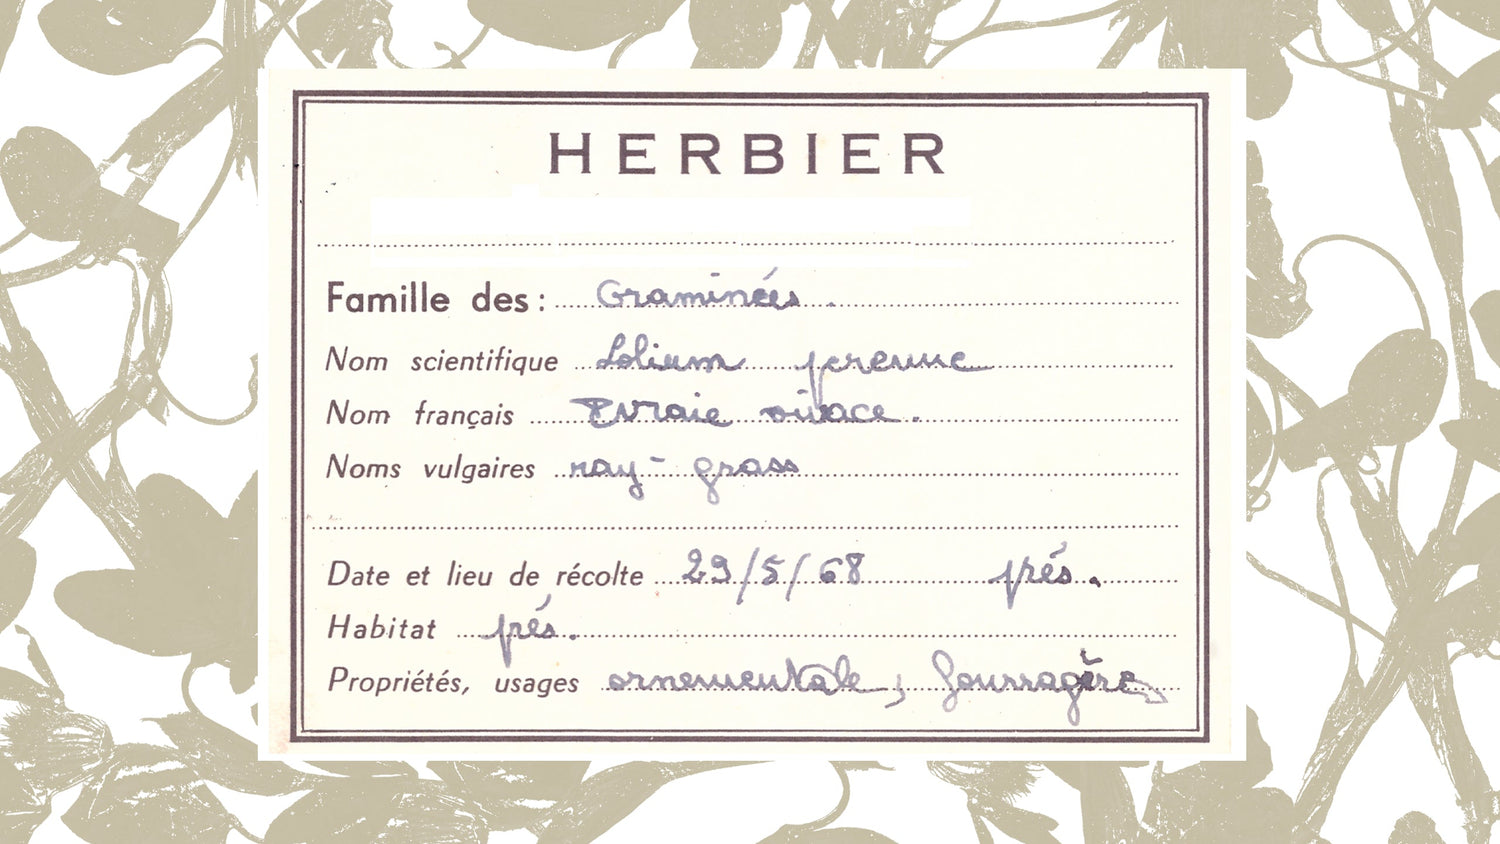 HERBIER
Famille des : Graminées.
Nom scientifique Lolium perenne
Nom français Ivraie vivace.
Noms vulgaires ray-grass
Date et lieu de récolte 29/5/68 prés.
Habitat prés.
Propriétés, usages ornementale, fourragère